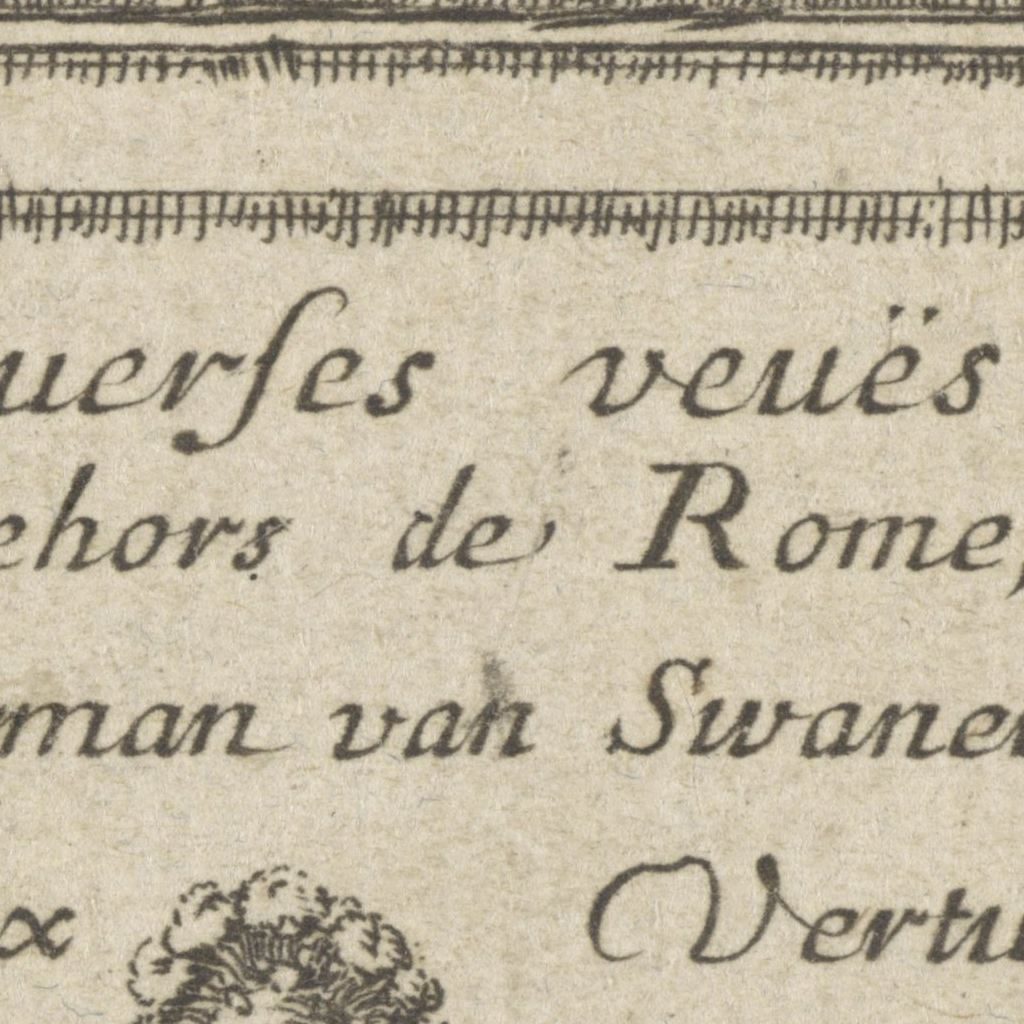 uerſes veuës
ehors de Rome,
man van Swane
x Vertu